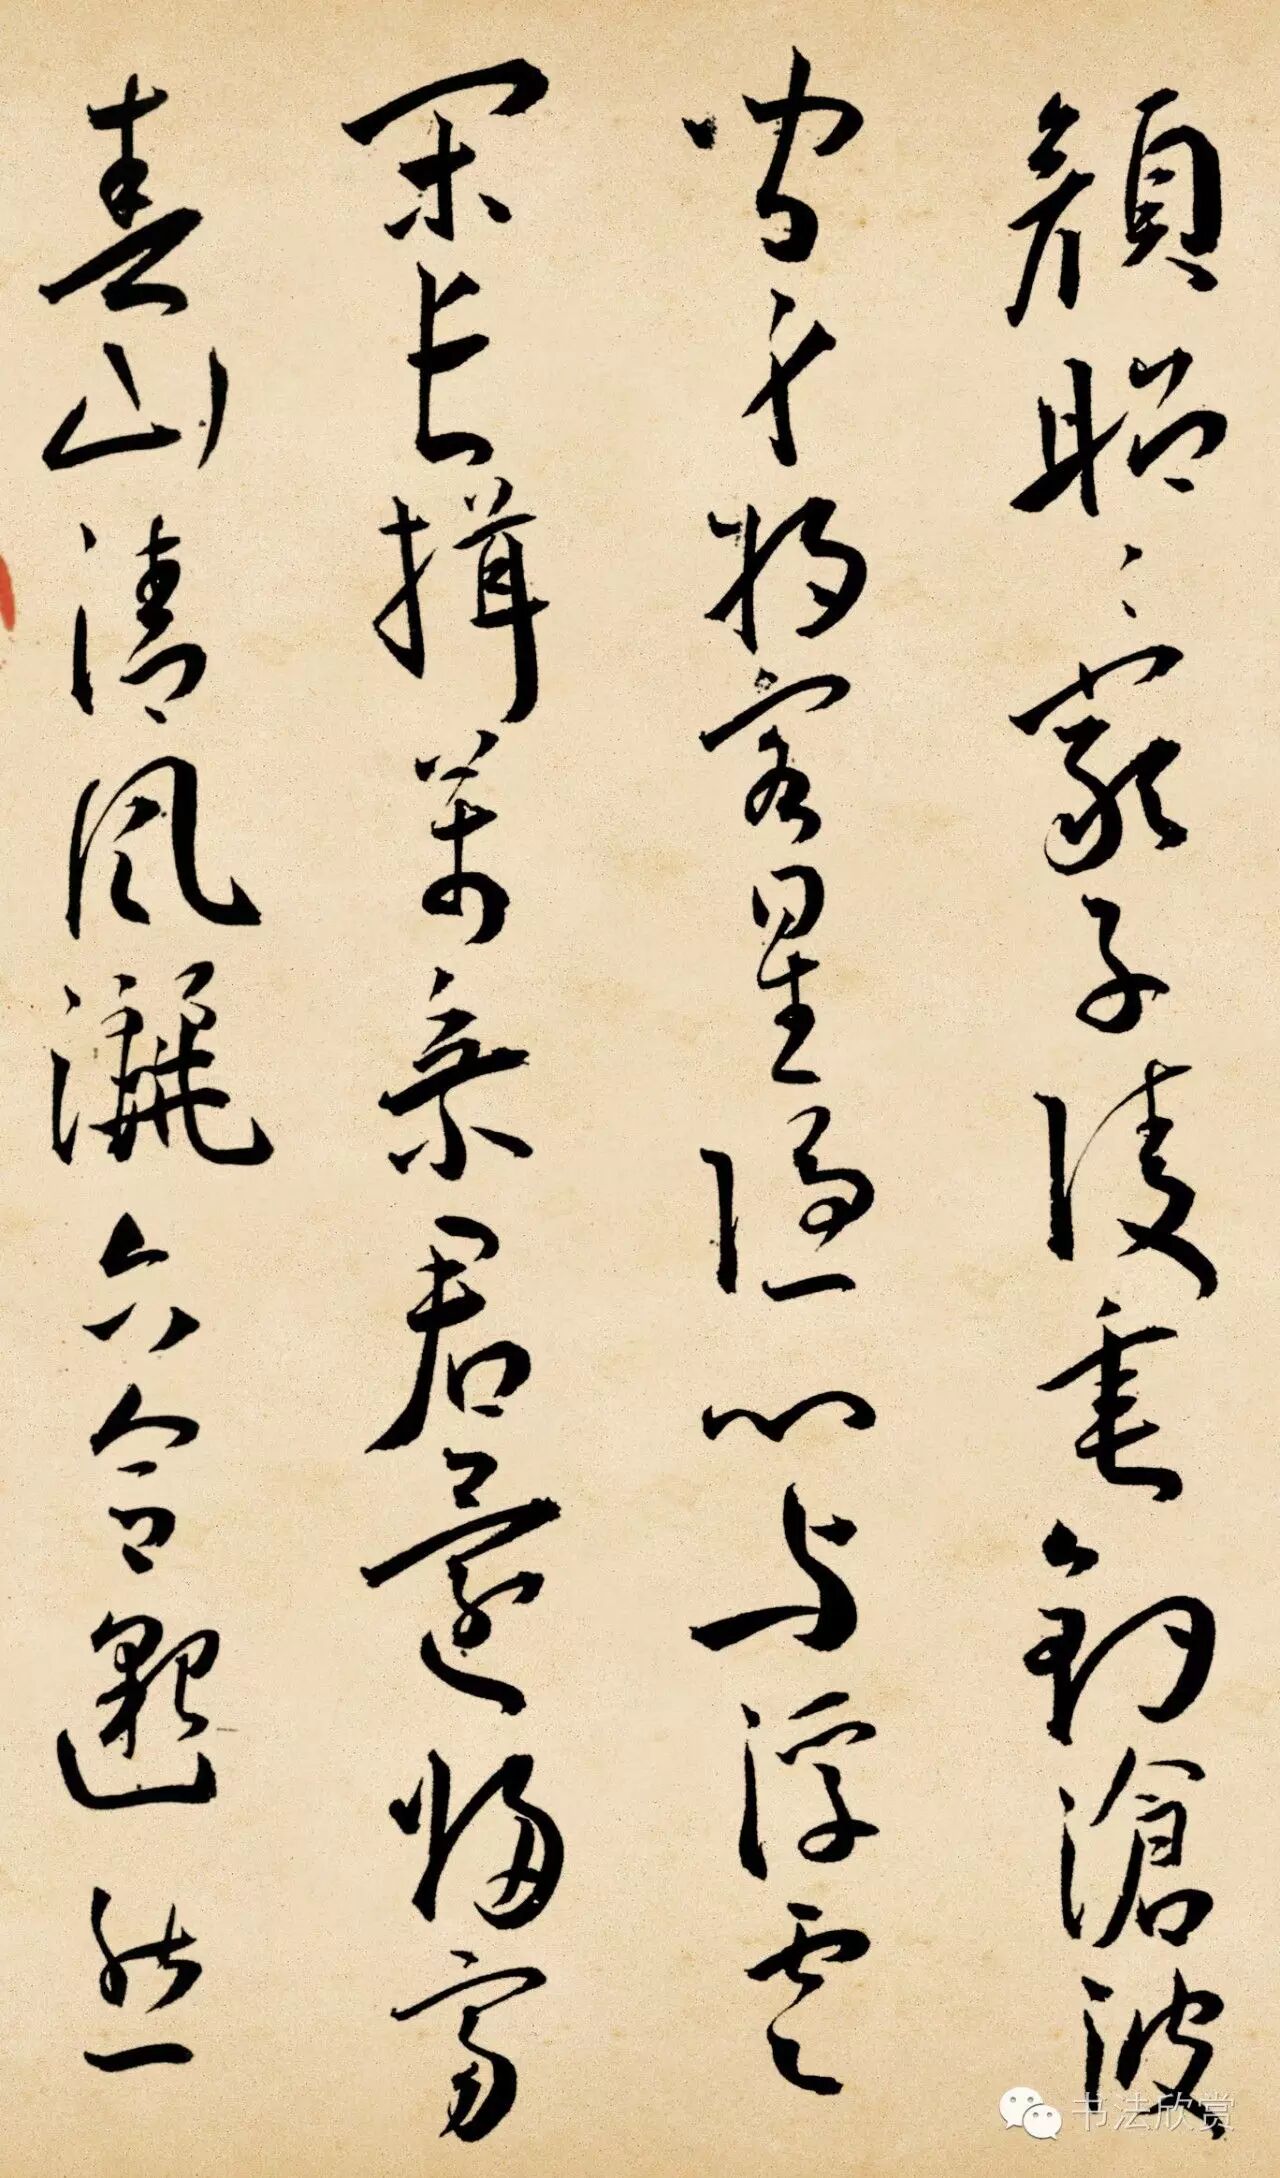 顏昭〻嚴子陵垂釣滄波
間身將客星隱心与浮雲
閑長揖萬乘君還歸富
春山清風灑六合邈然
书法欣赏